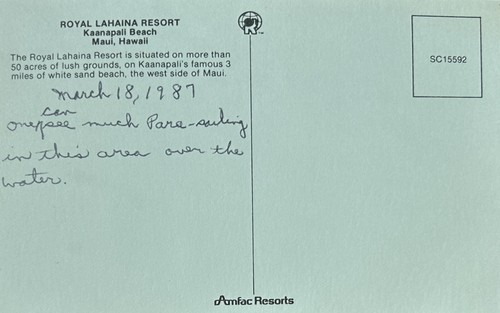 ROYAL LAHAINA RESORT
Kaanapali Beach
Maui, Hawaii
The Royal Lahaina Resort is situated on more than
50 acres of lush grounds, on Kaanapali's famous 3
miles of white sand beach, the west side of Maui.
March 18, 1987
can
one see much Para-sailing
in this area over the
water.
SC15592
Amfac Resorts